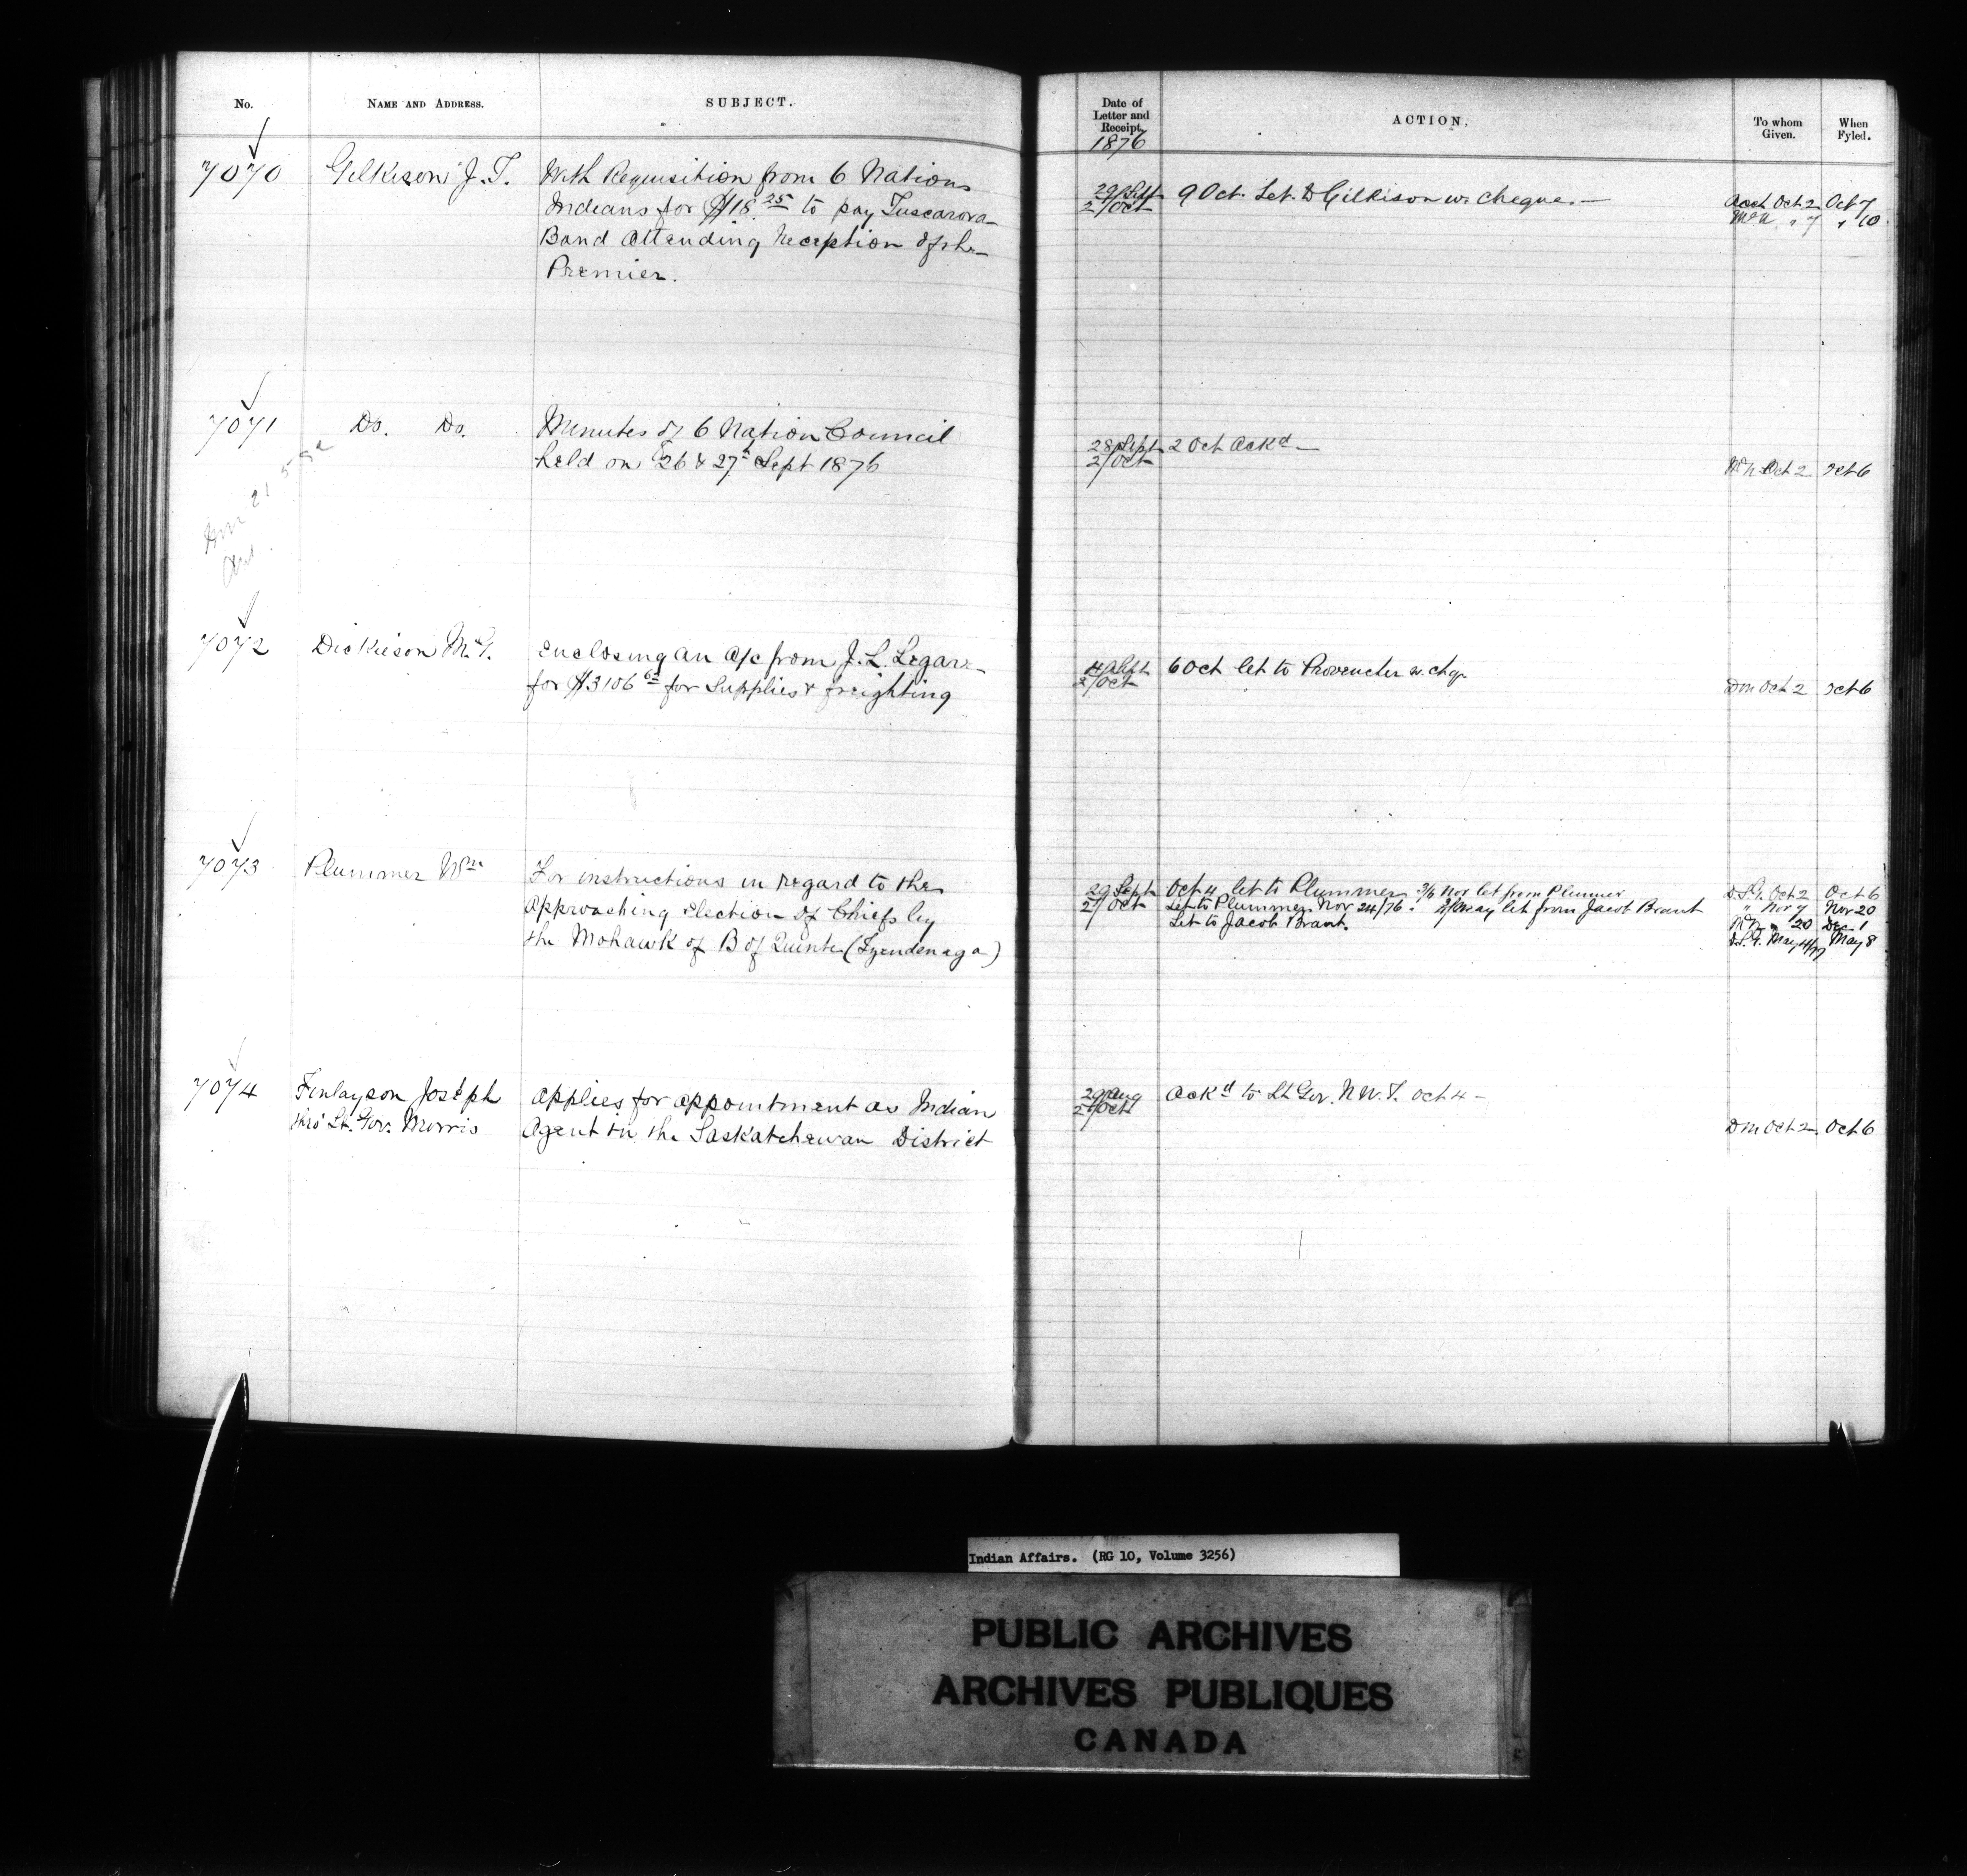 No.
NAME AND ADDRESS.
SUBJECT.
Date of
Letter and
Receipt.
1876
ACTION.
To whom
Given.
When
Fyled.
7070
Gilkison J. T.
With Requisition from 6 Nations
Indians for $18.25 to pay Tuscarora
Band Attending Reception of the
Premier.
29/Sept
2/Oct
9 Oct. Let. to Gilkison w. cheque. —
Acct Oct 2 Oct 7
" 7 " 10
7071
Do. Do.
Minutes of 6 Nation Council
held on 26 & 27th Sept 1876
28 Sept
2/Oct
2 Oct Ackd —
Oct 2 Oct 6
7072
Dickieson M. G.
enclosing an a/c from J. L. Legare
for $3106 for Supplies & freighting
4 Sept
2/Oct
6 Oct let to Provencher w. chq.
Dm Oct 2 Oct 6
7073
Plummer Wm
For instructions in regard to the
Approaching election of Chiefs by
the Mohawk of B of Quinte (Tyendenaga)
29 Sept
2/Oct
Oct 4 let to Plummer 3/6 Nov let from Plummer
Let to Plummer Nov 24/76. 2/May let from Jacob Brant
Let to Jacob Brant.
Oct 2 Oct 6
" Nov 7 Nov 20
" 20 Dec 1
May 4/77 May 8
7074
Finlayson Joseph
thro' Lt. Gov. Morris
applies for appointment as Indian
Agent in the Saskatchewan District
29 Aug
2/Oct
Ackd to Lt Gov. N. W. T. Oct 4 —
Dm Oct 2 Oct 6
Indian Affairs. (RG 10, Volume 3256)
PUBLIC ARCHIVES
ARCHIVES PUBLIQUES
CANADA